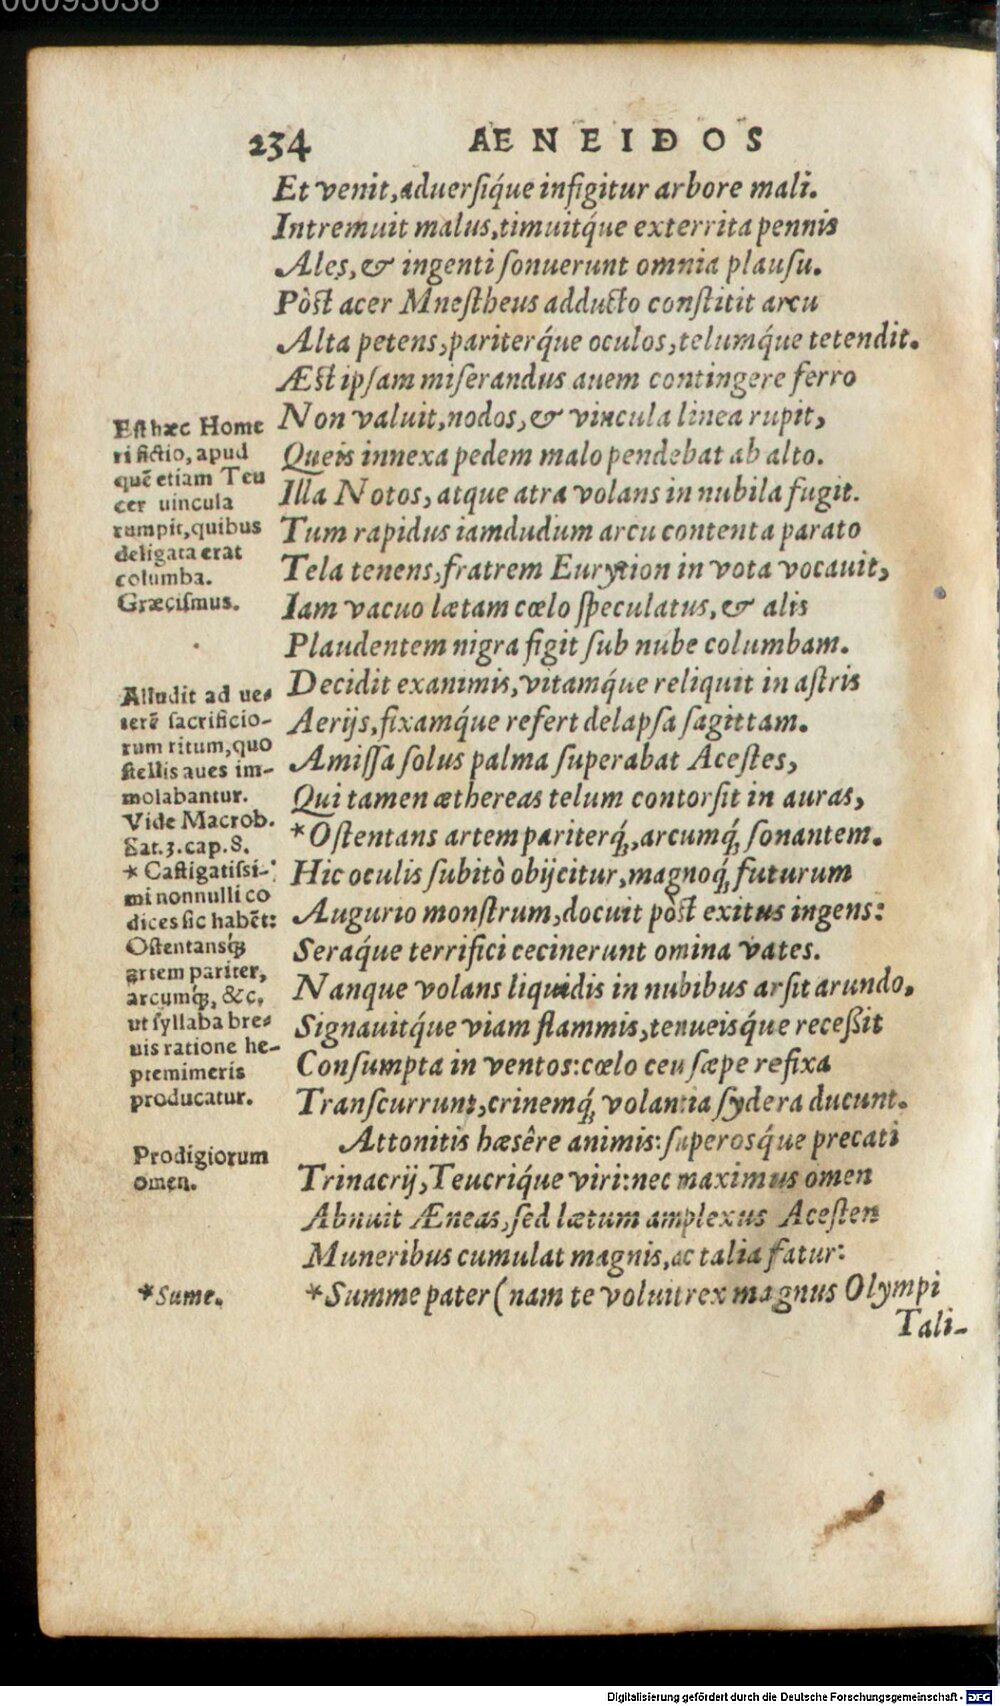 00093038
234 AENEIDOS
Et venit, aduersiq́ue infigitur arbore mali.
Intremuit malus, timuitq́ue exterrita pennis
Ales, & ingenti sonuerunt omnia plausu.
Pòst acer Mnestheus adducto constitit arcu
Alta petens, pariterq́ue oculos, telumq́ue tetendit.
Æst ipsam miserandus auem contingere ferro
Non valuit, nodos, & vincula linea rupit,
Queis innexa pedem malo pendebat ab alto.
Illa Notos, atque atra volans in nubila fugit.
Tum rapidus iamdudum arcu contenta parato
Tela tenens, fratrem Eurytion in vota vocauit,
Iam vacuo lætam cœlo speculatus, & alis
Plaudentem nigra figit sub nube columbam.
Decidit exanimis, vitamq́ue reliquit in astris
Aerijs, fixamq́ue refert delapsa sagittam.
Amissa solus palma superabat Acestes,
Qui tamen æthereas telum contorsit in auras,
*Ostentans artem pariterq́;, arcumq́; sonantem.
Hic oculis subitò obijcitur, magnoq́; futurum
Augurio monstrum, docuit pòst exitus ingens:
Seraq́ue terrifici cecinerunt omina vates.
Nanque volans liquidis in nubibus arsit arundo,
Signauitq́ue viam flammis, tenueisq́ue receßit
Consumpta in ventos: cœlo ceu sæpe refixa
Transcurrunt, crinemq́; volantia sydera ducunt.
Attonitis hæsêre animis: superosq́ue precati
Trinacrij, Teucriq́ue viri: nec maximus omen
Abnuit Æneas, sed lætum amplexus Acesten
Muneribus cumulat magnis, ac talia fatur:
*Summe pater (nam te voluit rex magnus Olympi
Tali-
Est hæc Home
ri fictio, apud
quē etiam Teu
cer uincula
rumpit, quibus
deligata erat
columba.
Græcismus.
Alludit ad ue-
terē sacrificio-
rum ritum, quo
stellis aues im-
molabantur.
Vide Macrob.
Sat. 3. cap. 8.
* Castigatissi-
mi nonnulli co
dices sic habēt:
Ostentansq́;
artem pariter,
arcumq́;, &c.
ut syllaba bre-
uis ratione he-
ptemimeris
producatur.
Prodigiorum
omen.
*Sume.
Digitalisierung gefördert durch die Deutsche Forschungsgemeinschaft - DFG